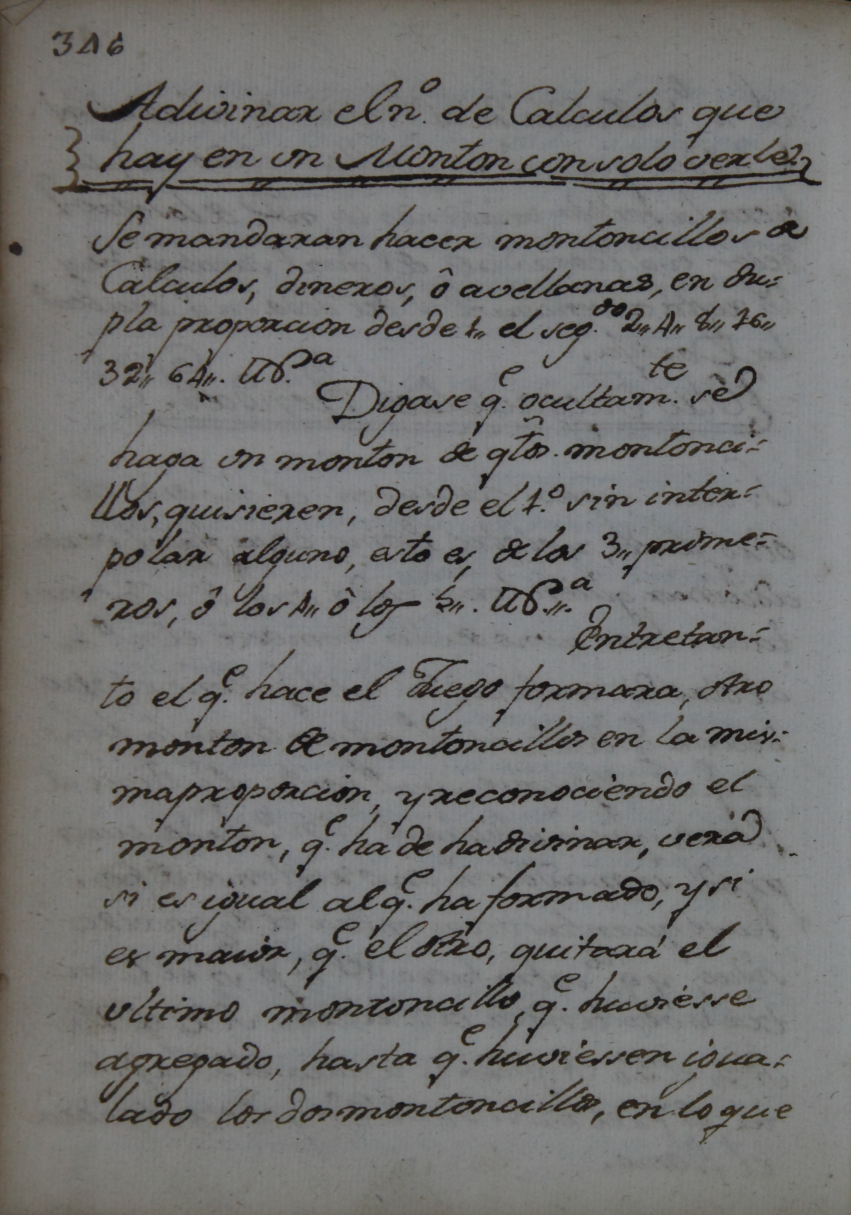 346
Adivinar el nº. de Calculos que
hay en un Monton con solo verle.
Se mandaran hacer montoncillos de
Calculos, dineros, ô avellanas, en du=
pla proporcion desde 1,, el seg.do 2,, 4,, 8,, 16,,
32,, 64,,.
Digase q.e ocultam.te se
haga un monton de qtõs. montonci=
llos, quisieren, desde el 1.º sin inter=
polar alguno, esto es, de los 3,, prime=
ros, ô los 4,, ô los 5,,.
Entretan=
to el q.e hace el Juego formara, otro
monton de montoncillos en la mis=
ma proporcion, y reconociendo el
monton, q.e ha de hadivinar, verá
si es igual al q.e ha formado, y si
es maior, q.e el otro, quitará el
ultimo montoncillo, q.e huviesse
agregado, hasta q.e huviessen igua=
lado los dos montoncillos, en lo que